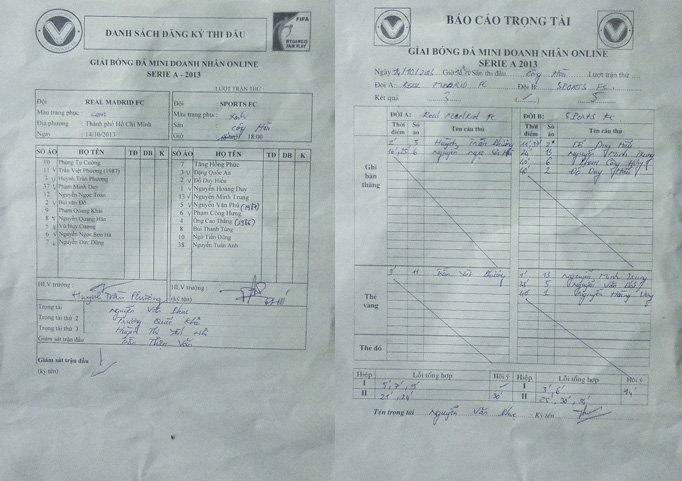 DANH SÁCH ĐĂNG KÝ THI ĐẤU
FIFA
MY GAME IS
FAIR PLAY
GIẢI BÓNG ĐÁ MINI DOANH NHÂN ONLINE
SERIE A - 2013
LƯỢT TRẬN THỨ :
Đội REAL MADRID FC Đội : SPORTS FC.
Màu trang phục : Cam Màu trang phục :
Địa phương : Thành phố Hồ Chí Minh Sân
Ngày : 14/10/2013 Giờ 18:00
SỐ ÁO HỌ TÊN TĐ DB K SỐ ÁO HỌ TÊN TĐ DB K
10 Phùng Tự Cường Tăng Hồng Phúc
11 Trần Việt Phương (1987) 3 Đặng Quốc An
3 Huỳnh Trần Phương 2 Đỗ Duy Hiếu
37 Phạm Minh Duy 1 Nguyễn Hoàng Duy
12 Nguyễn Ngọc Toàn 13 Nguyễn Minh Trung
2 Bùi văn Đô 5 Nguyễn Văn Phú (1987)
9 Phạm Quang Khải 6 Phạm Công Hưng
8 Nguyễn Quang Hân 4 Ông Cao Thắng (1986)
5 Vũ Duy Cương 8 Bùi Thanh Tùng
6 Nguyễn Ngọc Sơn Hà 10 Ngô Tiến Dũng
7 Nguyễn Đức Dũng 38 Nguyễn Tuấn Anh
HLV trưởng : HLV trưởng :
Huỳnh Trần Phương (ký tên)
Trọng tài Nguyễn Văn Như
Trọng tài thứ 2 Trương Quốc
Trọng tài thứ 3 Huỳnh Thị
Giám sát trận đấu Trần Văn
Giám sát trận đấu
(ký tên)
BÁO CÁO TRỌNG TÀI
GIẢI BÓNG ĐÁ MINI DOANH NHÂN ONLINE
SERIE A - 2013
Ngày 14/10/2013 Giờ Sân thi đấu Lượt trận thứ
Đội A: REAL MADRID FC Đội B: SPORTS FC.
Kết quả 3 5
ĐỘI A: Real Madrid FC ĐỘI B: SPorts FC.
Thời điểm Số áo Tên cầu thủ Thời điểm Số áo Tên cầu thủ
5 Huỳnh Trần Phương 2 Đỗ Duy Hiếu
6 Nguyễn Ngọc Sơn Hà 13 Nguyễn Minh Trung
6 Phạm Công Hưng
2 Đỗ Duy Hiếu
Ghi bàn thắng
11 Trần Việt Phương 13 Nguyễn Minh Trung
5 Nguyễn Văn Phú
1 Nguyễn Hoàng Duy
Thẻ vàng
Thẻ đỏ
Hiệp Lỗi tổng hợp Hội ý Hiệp Lỗi tổng hợp Hội ý
I 5', 7', 9' I 3', 6' 14'
II 21', 24' 30' II 25', 30',
Tên trọng tài Nguyễn Văn Như Ký tên